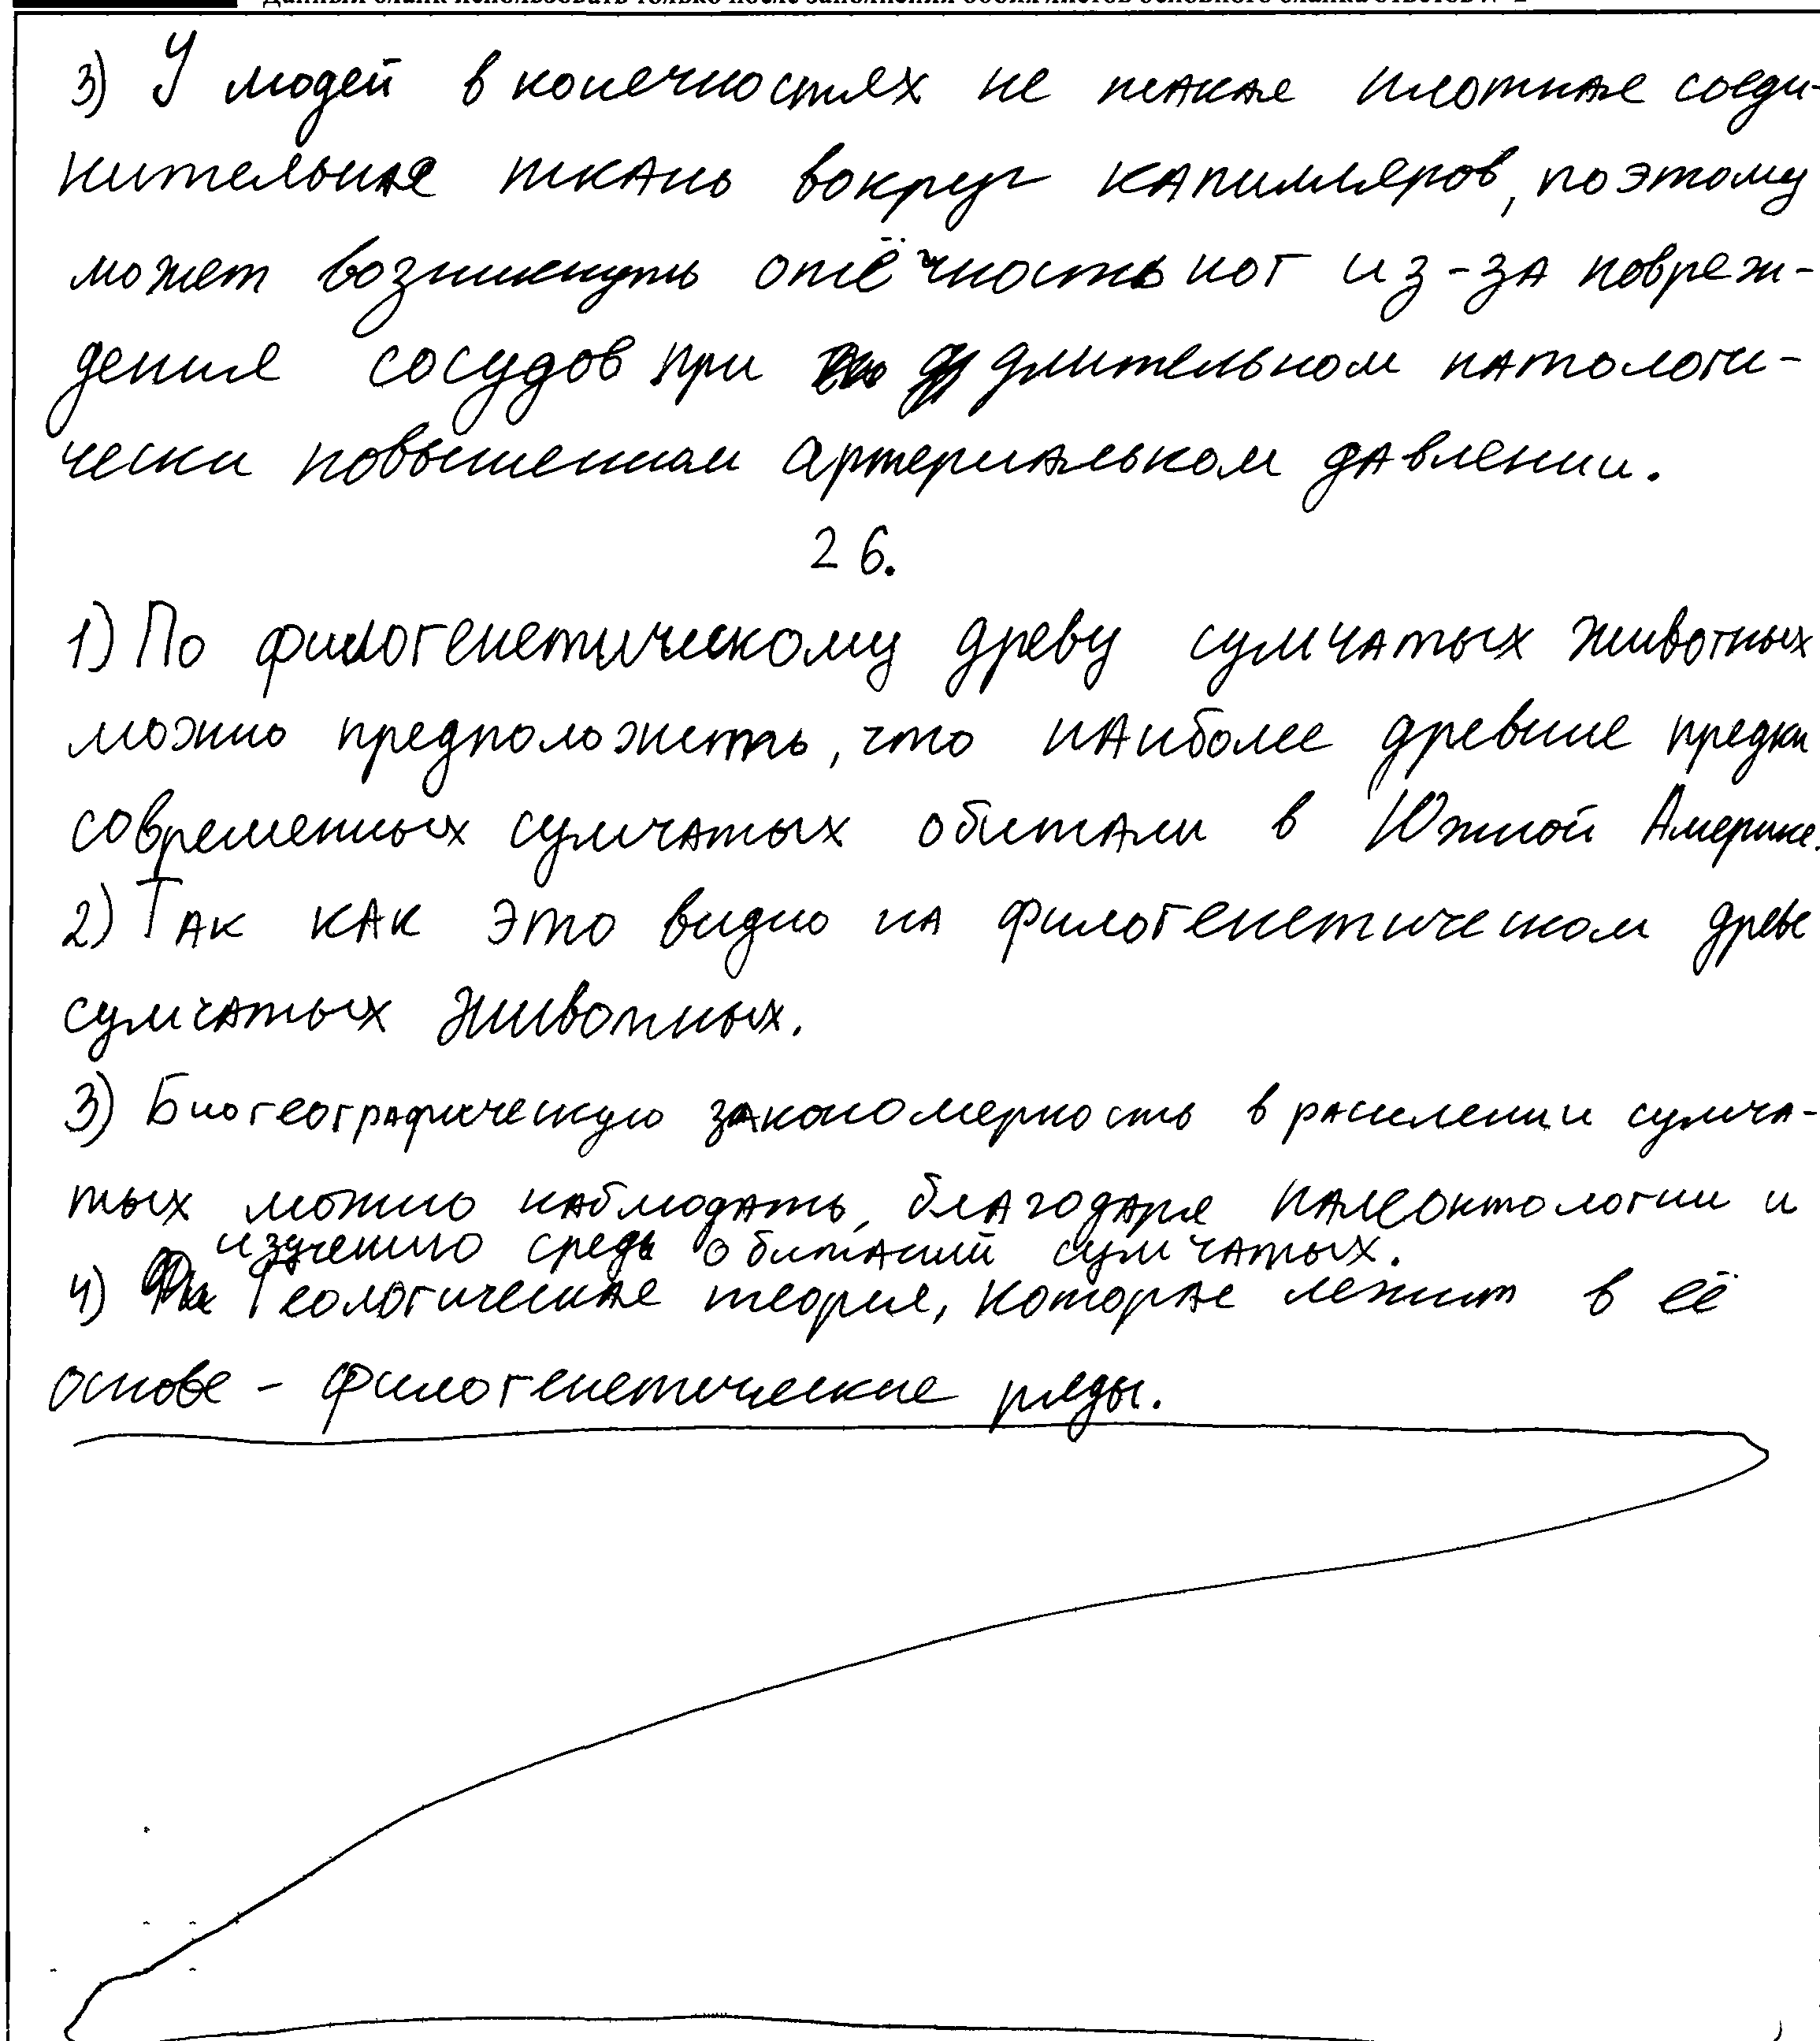 Данный бланк использовать только после заполнения обоих листов основного бланка ответов № 2
3) У людей в конечностях не такая плотная соеди-
нительная ткань вокруг капилляров, поэтому
может возникнуть отёчность ног из-за повреж-
дения сосудов при длительном патологи-
чески повышенном артериальном давлении.
26.
1) По филогенетическому древу сумчатых животных
можно предположить, что наиболее древние предки
современных сумчатых обитали в Южной Америке.
2) Так как это видно на филогенетическом древе
сумчатых животных.
3) Биогеографическую закономерность в расселении сумча-
тых можно наблюдать, благодаря палеонтологии и
изучению среды обитаний сумчатых.
4) Геологическая теория, которая лежит в её
основе - филогенетические ряды.